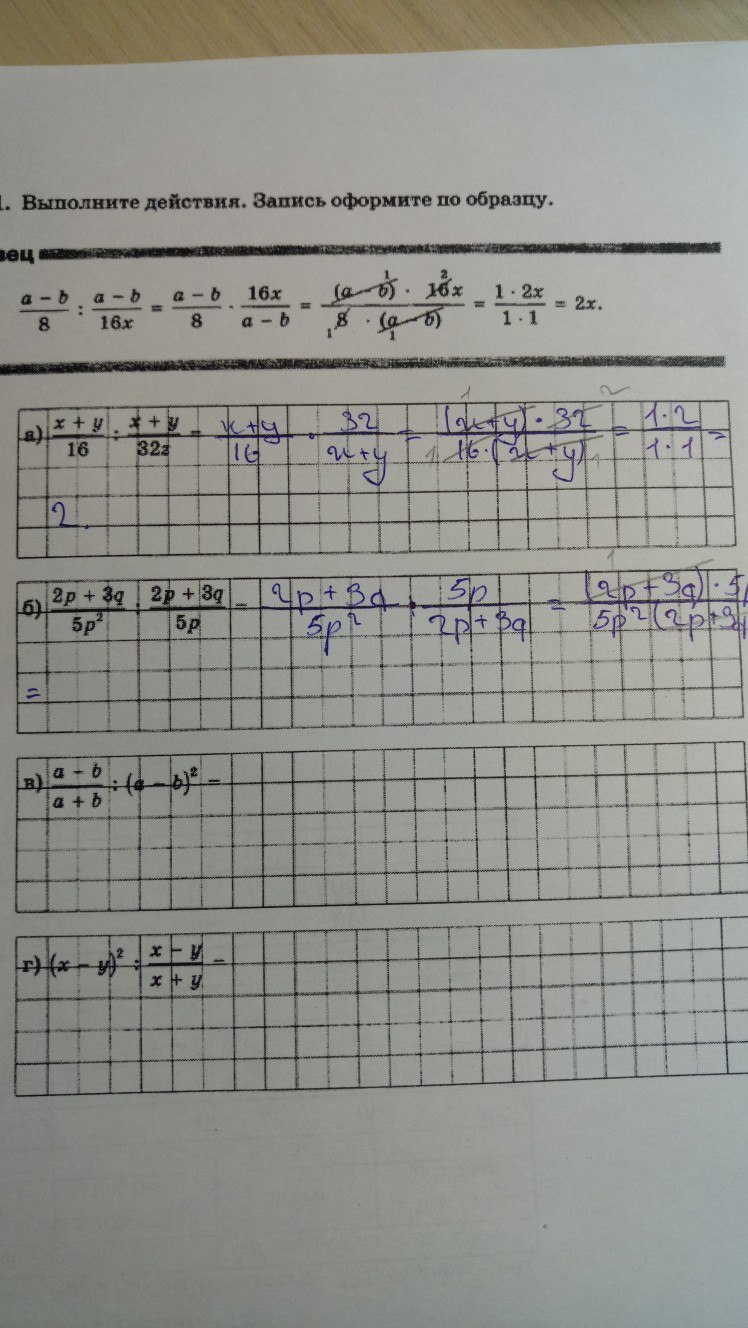 1. Выполните действия. Запись оформите по образцу.
зец
a − b/8 : a − b/16x = a − b/8 · 16x/a − b = (a − b)^1 · 16^2x/_1 8 · (a − b)_1 = 1 · 2x/1 · 1 = 2x.
а) x + y/16 : x + y/32z = x+y/16 · 32/x+y = (x+y)^1 · 32^2/_1 16·(x+y)_1 = 1·2/1·1 =
2.
б) 2p + 3q/5p² : 2p + 3q/5p = 2p+3q/5p² · 5p/2p+3q = (2p+3q)^1 · 5p/5p²(2p+3q
=
в) a − b/a + b : (a − b)² =
г) (x − y)² : x − y/x + y =